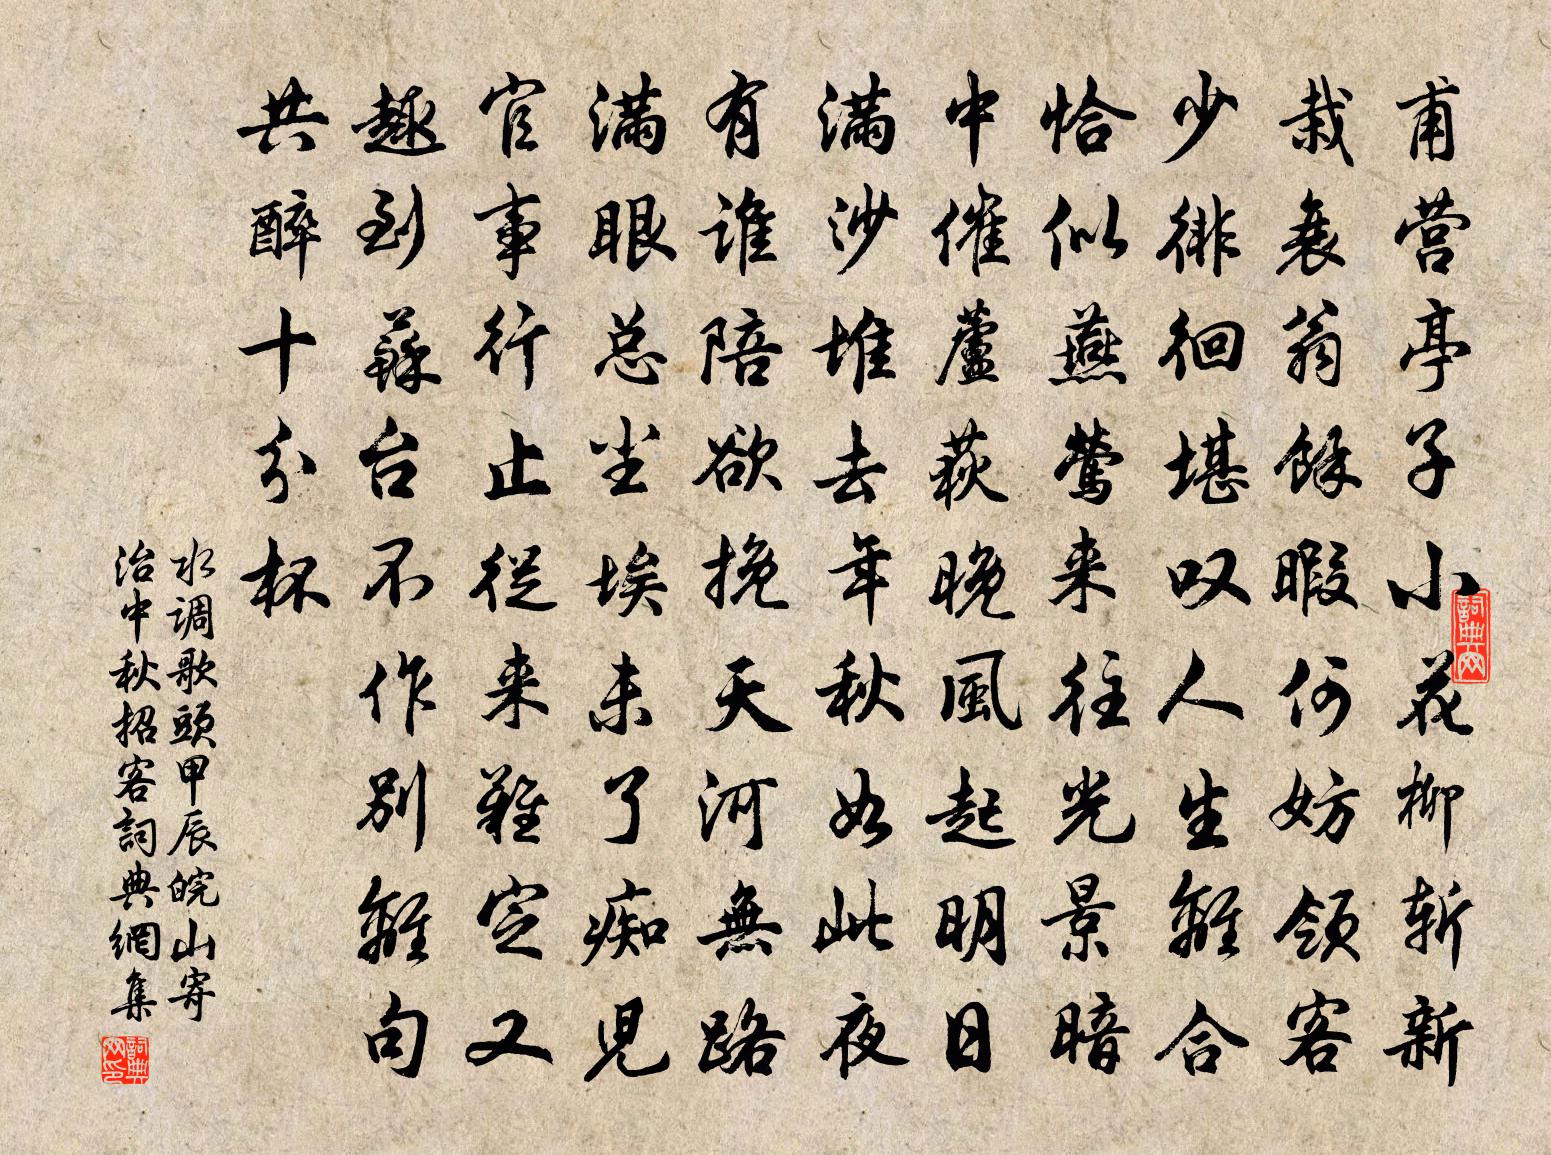 甫营亭子小花柳斩新
栽衰翁馀暇何妨领客
少徘徊堪叹人生離合
恰似燕莺来往光景暗
中催蘆荻晚風起明日
满沙堆去年秋如此夜
有谁陪欲挽天河無路
满眼总尘埃未了痴児
官事行止從来難定又
趣到蘇台不作别離句
共醉十分杯
水调歌頭甲辰皖山寄
治中秋招客詞典網集
詞典网
詞典网印